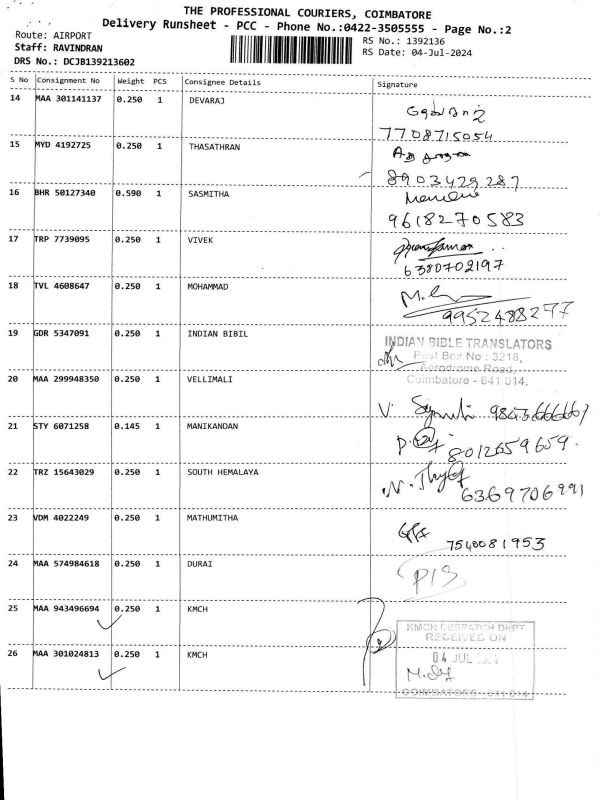 THE PROFESSIONAL COURIERS, COIMBATORE
Delivery Runsheet - PCC - Phone No.:0422-3505555 - Page No.:2
Route: AIRPORT
Staff: RAVINDRAN
DRS No.: DCJB139213602
RS No.: 1392136
RS Date: 04-Jul-2024
S No Consignment No Weight PCS Consignee Details Signature
14 MAA 301141137 0.250 1 DEVARAJ
7708715054
15 MYD 4192725 0.250 1 THASATHRAN
8903429287
16 BHR 50127340 0.590 1 SASMITHA
9618270583
17 TRP 7739095 0.250 1 VIVEK
6380702197
18 TVL 4608647 0.250 1 MOHAMMAD
9952488277
19 GDR 5347091 0.250 1 INDIAN BIBIL
INDIAN BIBLE TRANSLATORS
Post Box No : 3218,
Aerodrome Road,
Coimbatore - 641 014.
20 MAA 299948350 0.250 1 VELLIMALI
V.
21 STY 6071258 0.145 1 MANIKANDAN
8012659659.
22 TRZ 15643029 0.250 1 SOUTH HEMALAYA
6369706991
23 VDM 4022249 0.250 1 MATHUMITHA
7540081953
24 MAA 574984618 0.250 1 DURAI
25 MAA 943496694 0.250 1 KMCH
KMCH DESPATCH DEPT
RECEIVED ON
26 MAA 301024813 0.250 1 KMCH
04 JUL
COIMBATORE - 641 014